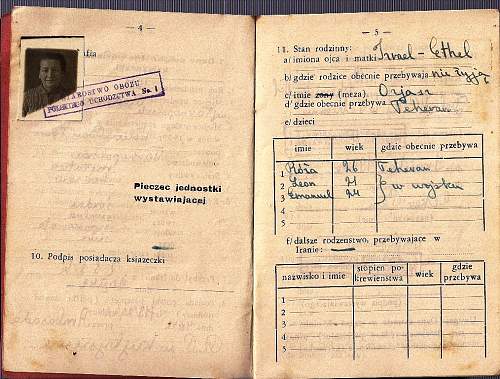 — 4 —
fia
STAROSTWO OBOZU
POLSKIEGO UCHODZTWA No. 1
Pieczęc jednostki
wystawiającej
10. Podpis posiadacza ksiazeczki
— 5 —
11. Stan rodzinny:
a/ imiona ojca i matki Izrael - Ethel
b/ gdzie rodzice obecnie przebywaja nie żyją
c/ imie zony (meza)
d/ gdzie obecnie przebywa Teheran
e/ dzieci
imie wiek gdzie obecnie przebywa
1 Róża 26 Teheran
2 Leon 21 } w wojsku
3 Emanuel 24
4
5
f/ dalsze rodzenstwo, przebywajace w
Iranie: —
nazwisko i imie stopien po-
krewienstwa wiek gdzie
przebywa
1
2
3
4
5